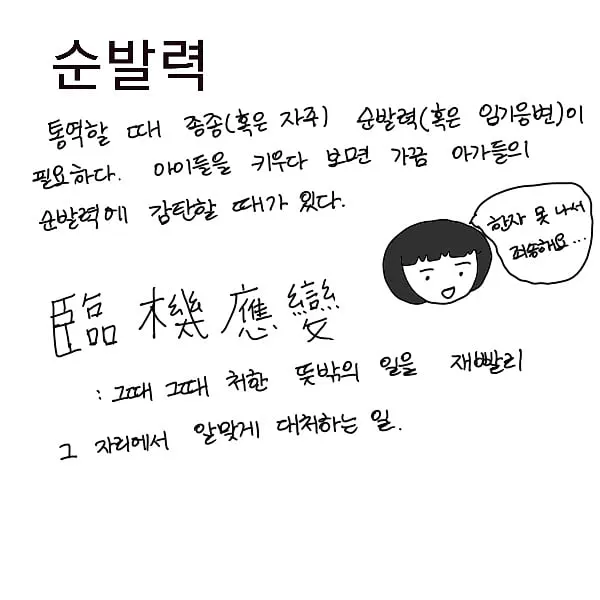 순발력
통역할 때 종종(혹은 자주) 순발력(혹은 임기응변)이
필요하다. 아이들을 키우다 보면 가끔 아가들의
순발력에 감탄할 때가 있다.
한자 못 나서
죄송해요...
臨機應變
: 그때 그때 처한 뜻밖의 일을 재빨리
그 자리에서 알맞게 대처하는 일.